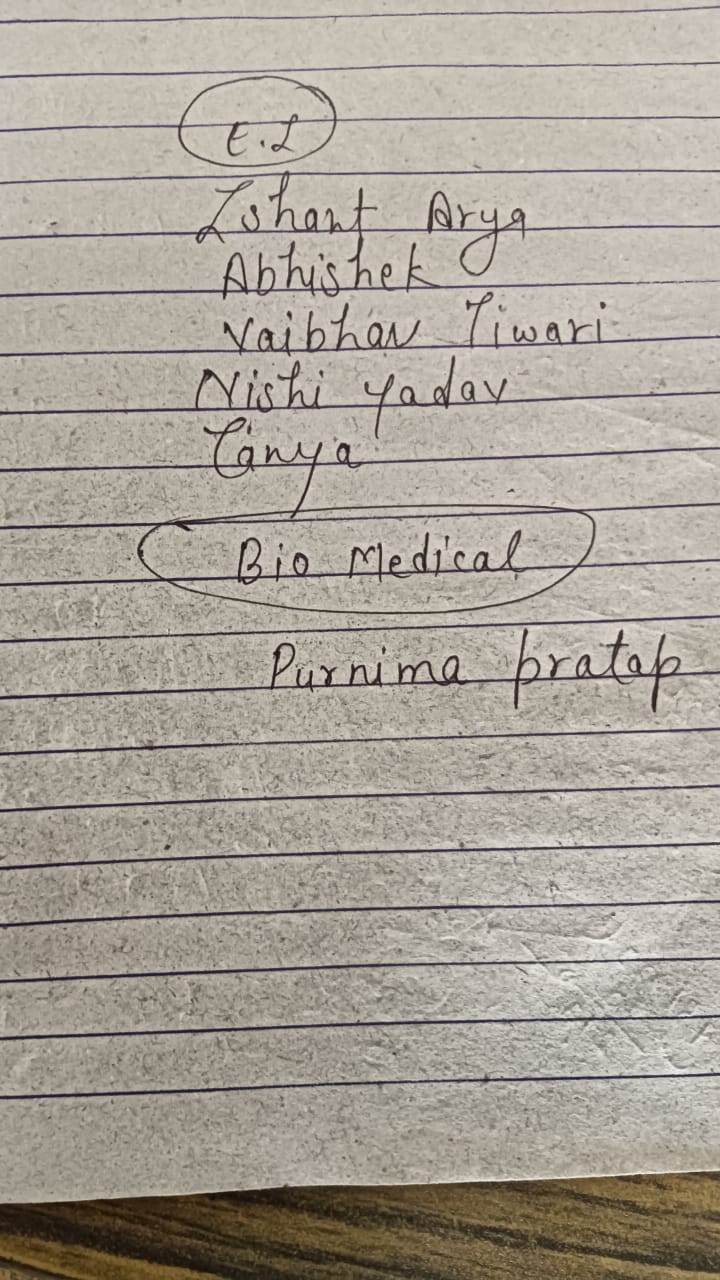 E.I
Ishant Arya
Abhishek
Vaibhav Tiwari
Nishi Yadav
Tanya
Bio Medical
Purnima pratap